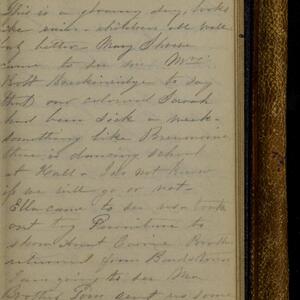 This is a gloomy day, looks
like rain - children all well
but little Mary Shreve
came to see me Mrs
Robt Breckinridge to say
that our colored Sarah
had been sick a week -
something like Pneumonia
there is dancing school
at Hall - I do not know
if we will go or not
Ella came to see us & took
out toy Furniture to
show Aunt Carrie
returned from Bardstown
I am going to see Ma
some